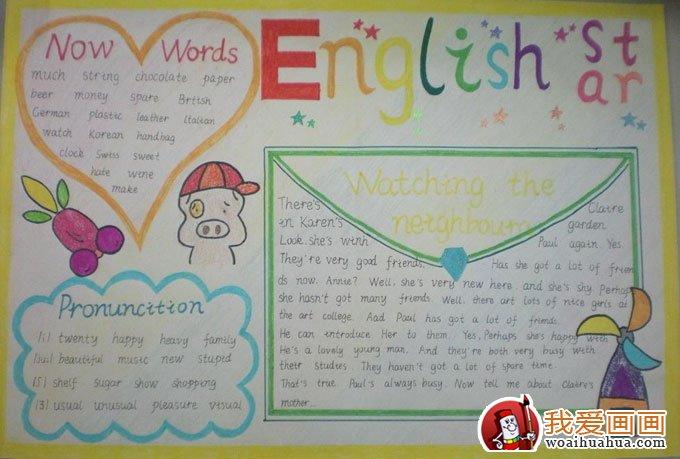 English Star
Now Words
much string chocolate paper
beer money spare British
German plastic leather Italian
watch Korean handbag
clock Swiss sweet
hate wine
make
Pronunction
[i] twenty happy heavy family
[ju:] beautiful music new stupid
[ʃ] shelf sugar show shopping
[ʒ] usual unusual pleasure visual
Watching the
neighbours
There's Claire
in Karen's garden
Look. she's winh Paul again. Yes.
They're very good friends. Has she got a lot of frien
ds now. Annie? Well. she's very new here. and she's shy. Perhaps
she hasn't got many friends. Well. there art lots of nice girls at
the art college. Aad Paul has got a lot of friends.
He can introduce Her to them. Yes. Perhaps she's happy with
He's a lovely young man. And they're both very busy with
their studies. They haven't got a lot of spare time.
That's true. Paul's always busy. Now tell me about Claire's
mother...
我爱画画
woaihuahua.com